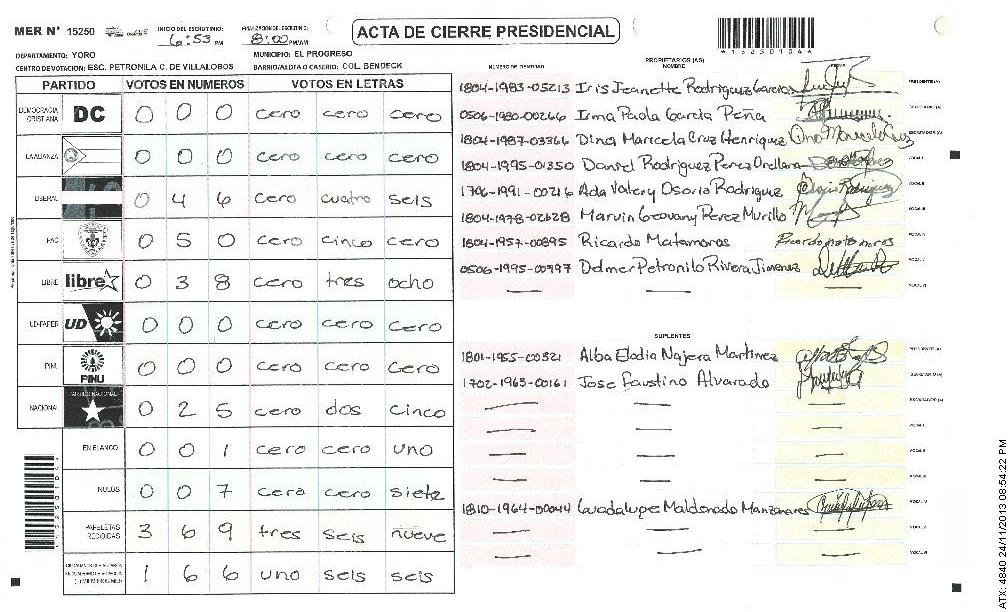 MER Nº 15250
INICIO DEL ESCRUTINIO:
6:53 PM
FINALIZACION DEL ESCRUTINIO:
8:00 PM/AM
ACTA DE CIERRE PRESIDENCIAL
DEPARTAMENTO: YORO
MUNICIPIO: EL PROGRESO
CENTRO DE VOTACION: ESC. PETRONILA C. DE VILLALOBOS
BARRIO/ALDEA O CASERIO: COL. BENDECK
PARTIDO VOTOS EN NUMEROS VOTOS EN LETRAS
DEMOCRACIA CRISTIANA DC 0 0 0 cero cero cero
LA ALIANZA 0 0 0 cero cero cero
LIBERAL 0 4 6 cero cuatro seis
PAC 0 5 0 cero cinco cero
LIBRE libre 0 3 8 cero tres ocho
UD-FAPER UD 0 0 0 cero cero cero
PINU 0 0 0 cero cero cero
NACIONAL PARTIDO NACIONAL 0 2 5 cero dos cinco
EN BLANCO 0 0 1 cero cero uno
NULOS 0 0 7 cero cero siete
PAPELETAS RECIBIDAS 3 6 9 tres seis nueve
1 6 6 uno seis seis
NUMERO DE IDENTIDAD
PROPIETARIOS (AS)
NOMBRE
1804-1983-05213 Iris Jeanette Rodriguez Garcia PRESIDENTE(A)
0506-1980-00266 Irma Paola Garcia Peña SECRETARIO(A)
1804-1987-03366 Dina Maricela Cruz Henriquez ESCRUTADOR(A)
1804-1995-01350 Daniel Rodriguez Perez Orellana VOCAL I
1706-1991-00216 Ada Valery Osorio Rodriguez VOCAL II
1804-1978-02628 Marvin Geovany Perez Murillo VOCAL III
1804-1957-00895 Ricardo Matamoros Ricardo matamoros VOCAL IV
0506-1995-00797 Delmer Petronilo Rivera Jimenez VOCAL V
VOCAL VI
SUPLENTES
1801-1955-00521 Alba Elodia Najera Martinez PRESIDENTE(A)
1702-1965-00161 Jose Faustino Alvarado SECRETARIO(A)
ESCRUTADOR(A)
VOCAL I
VOCAL II
VOCAL III
1810-1964-00044 Guadalupe Maldonado Manzanares VOCAL IV
VOCAL V
VOCAL VI
152501041
ATX: 4840 24/11/2013 08:54:22 PM